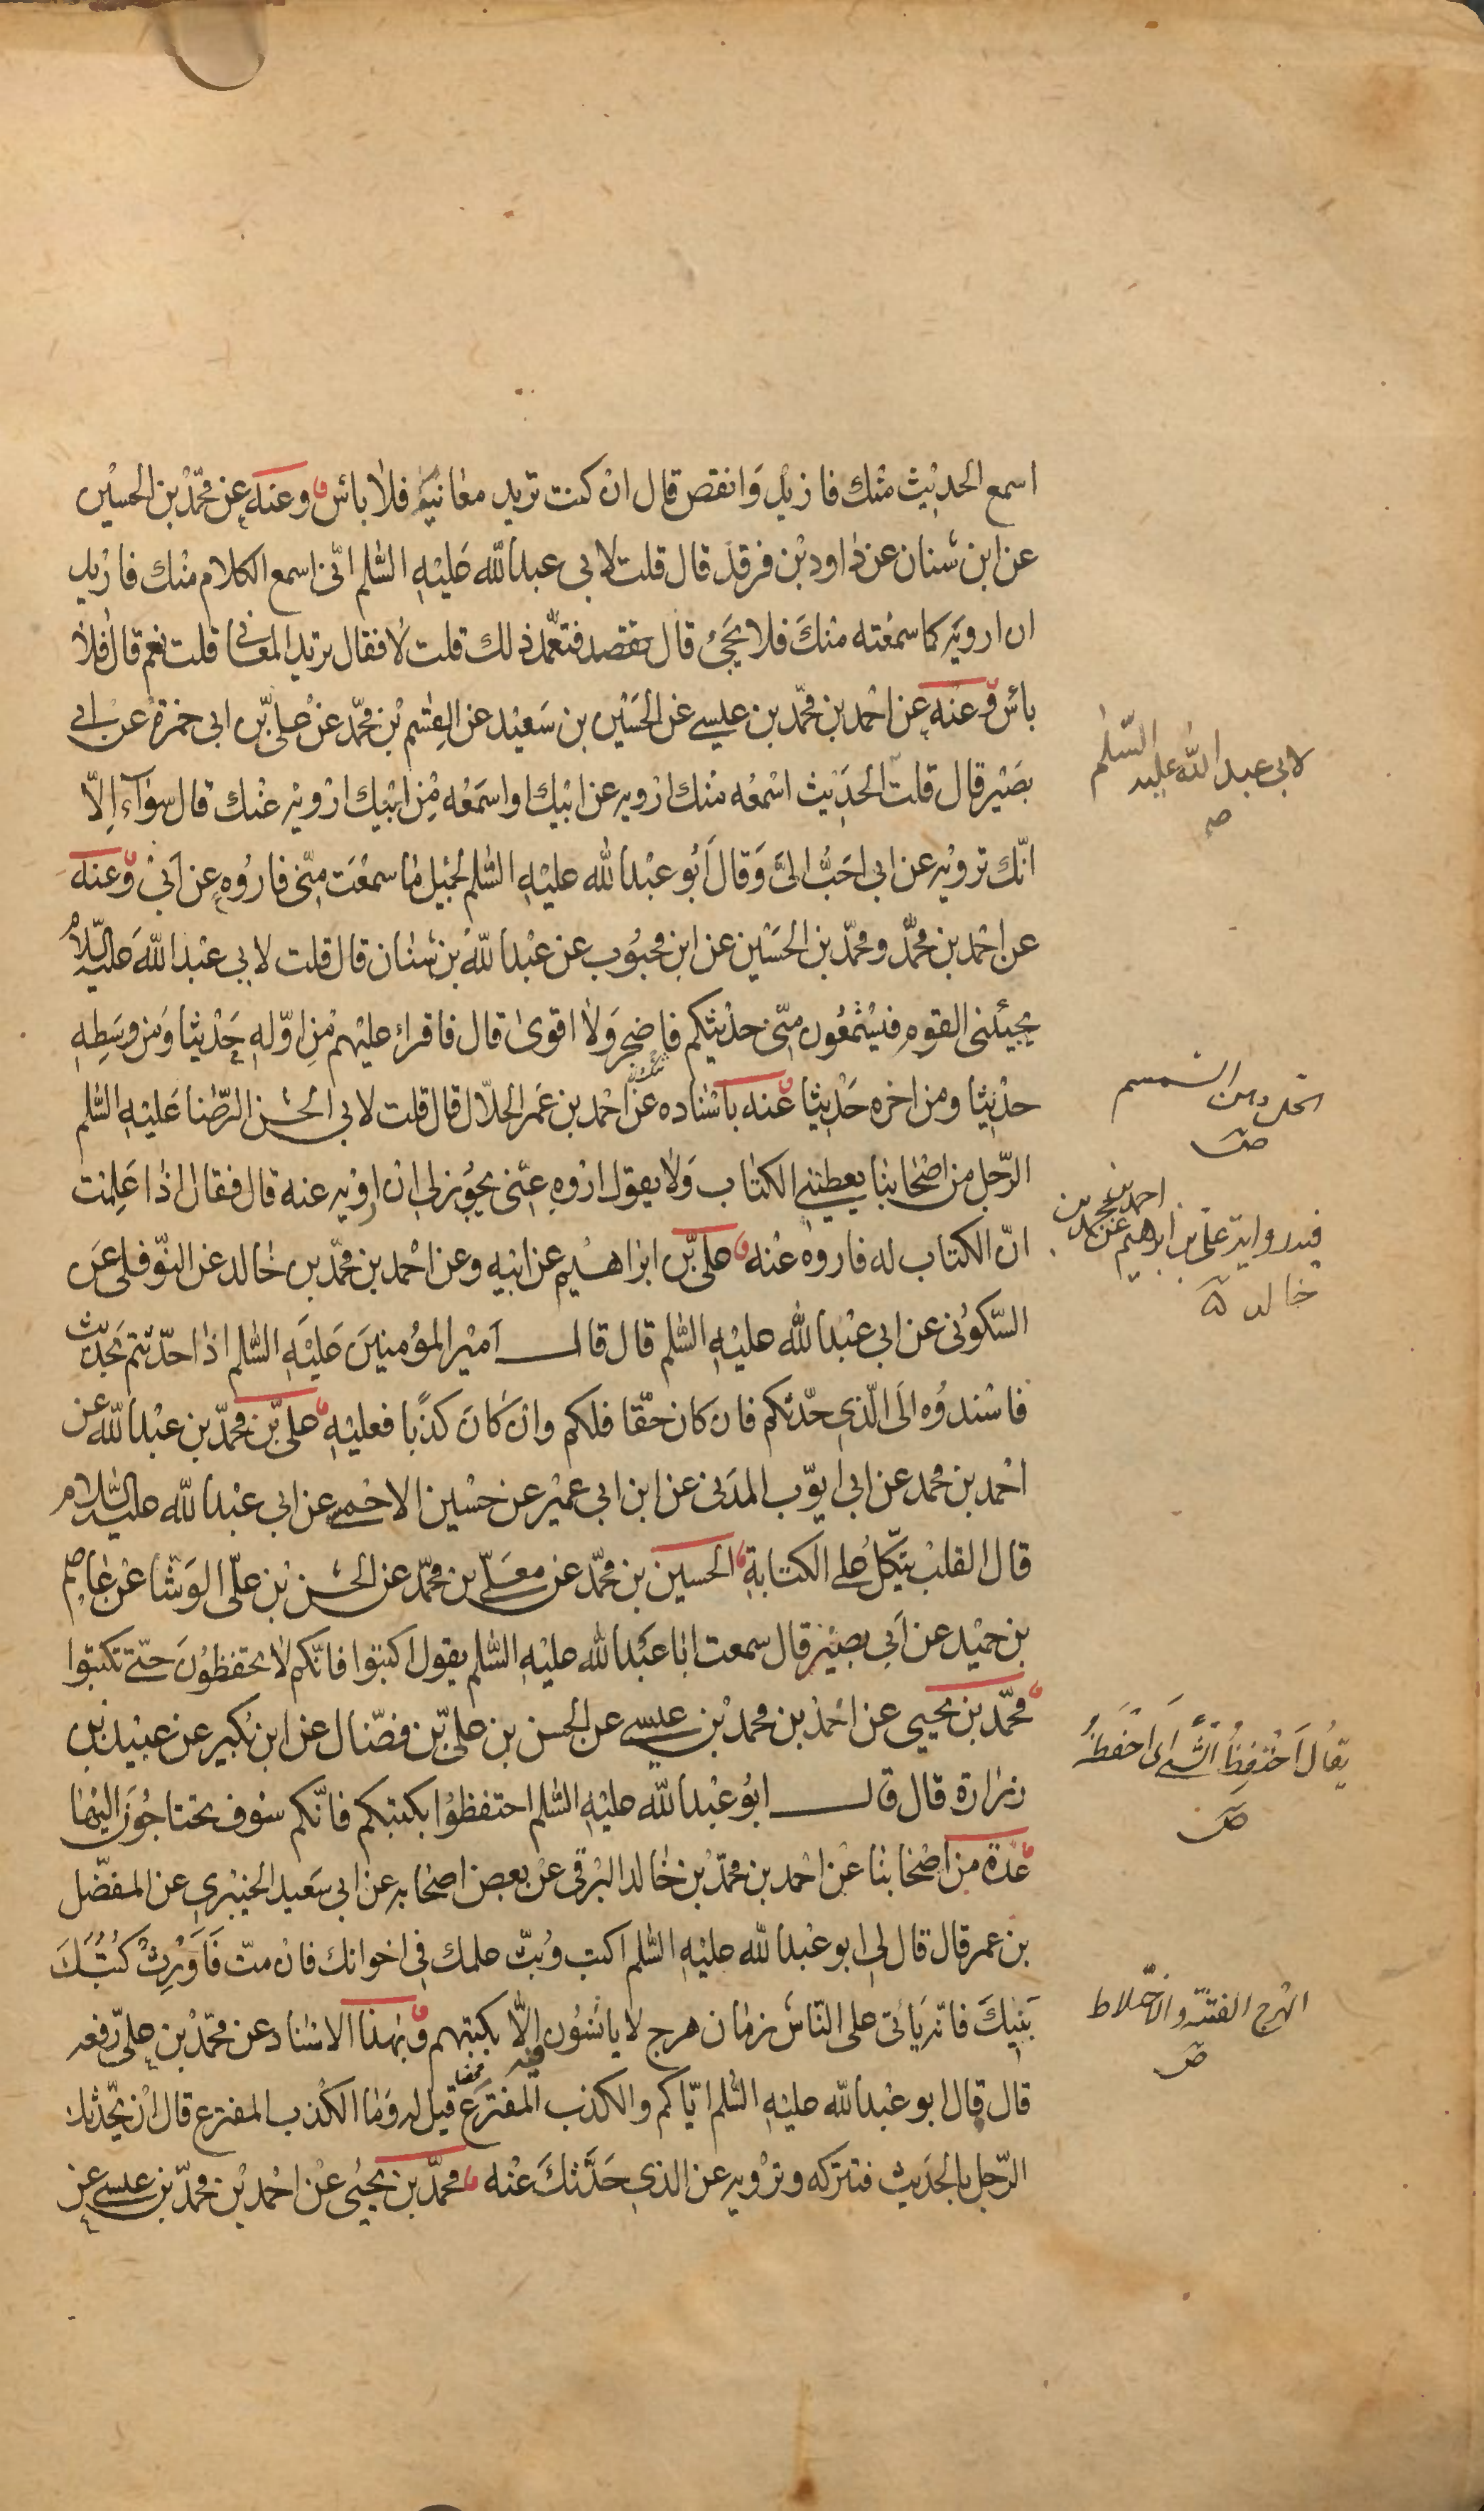 اسمع الحديث منك فازيد وانقص قال ان كنت تريد معانيه فلا بأس وعنه عن محمد بن الحسين
عن ابن سنان عن داود بن فرقد قال قلت لابي عبد الله عليه السلم انى اسمع الكلام منك فاريد
ان ارويه كما سمعته منك فلا يجئ قال فتعمد ذلك قلت لا فقال تريد المعانى قلت نعم قال فلا
بأس وعنه عن احمد بن محمد بن عيسى عن الحسين بن سعيد عن القسم بن محمد عن على بن ابى حمزة عن ابى
بصير قال قلت الحديث اسمعه منك ارويه عن ابيك او اسمعه من ابيك ارويه عنك قال سوآء الا
انك ترويه عن ابى احب الى وقال ابو عبد الله عليه السلم لجميل ما سمعت منى فاروه عن ابى وعنه
عن احمد بن محمد ومحمد بن الحسين عن ابن محبوب عن عبد الله بن سنان قال قلت لابى عبد الله عليه السلام
يجيئنى القوم فيستمعون منى حديثكم فاضجر ولا اقوى قال فاقرأ عليهم من اوله حديثا ومن وسطه
حديثا ومن اخره حديثا عنه باسناده عن احمد بن عمر الحلال قال قلت لابى الحسن الرضا عليه السلم
الرجل من اصحابنا يعطينى الكتاب ولا يقول اروه عنى يجوز لى ان ارويه عنه قال فقال اذا علمت
ان الكتاب له فاروه عنه على بن ابراهيم عن ابيه وعن احمد بن محمد بن خالد عن النوفلى عن
السكونى عن ابى عبد الله عليه السلم قال قال امير المؤمنين عليه السلم اذا حدثتم بحديث
فاسندوه الى الذى حدثكم فان كان حقا فلكم وان كان كذبا فعليه على بن محمد بن عبد الله عن
احمد بن محمد عن ابى ايوب المدنى عن ابن ابى عمير عن حسين الاحمسى عن ابى عبد الله عليه السلام
قال القلب يتكل على الكتابة الحسين بن محمد عن معلى بن محمد عن الحسن بن على الوشا عن عاصم
بن حميد عن ابى بصير قال سمعت ابا عبد الله عليه السلم يقول اكتبوا فانكم لا تحفظون حتى تكتبوا
محمد بن يحيى عن احمد بن محمد بن عيسى عن الحسن بن على بن فضال عن ابن بكير عن عبيد بن
زرارة قال قال ابو عبد الله عليه السلم احتفظوا بكتبكم فانكم سوف تحتاجون اليها
عدة من اصحابنا عن احمد بن محمد بن خالد البرقى عن بعض اصحابه عن ابى سعيد الخيبرى عن المفضل
بن عمر قال قال لى ابو عبد الله عليه السلم اكتب وبث علمك فى اخوانك فان مت فاورث كتبك
بنيك فانه يأتى على الناس زمان هرج لا يأنسون فيه الا بكتبهم وبهذا الاسناد عن محمد بن على رفعه
قال قال ابو عبد الله عليه السلم اياكم والكذب المفترع قيل له وما الكذب المفترع قال ان يحدثك
الرجل بالحديث فتتركه وترويه عن الذى حدثك عنه محمد بن يحيى عن احمد بن محمد بن عيسى عن
لابى عبد الله عليه السلم
الحل دهن السمسم
فيه رواية على بن ابرهيم عن احمد بن محمد بن
خالد
يقال احتفظ الشئ اى احفظه
الهرج الفتنة والاختلاط